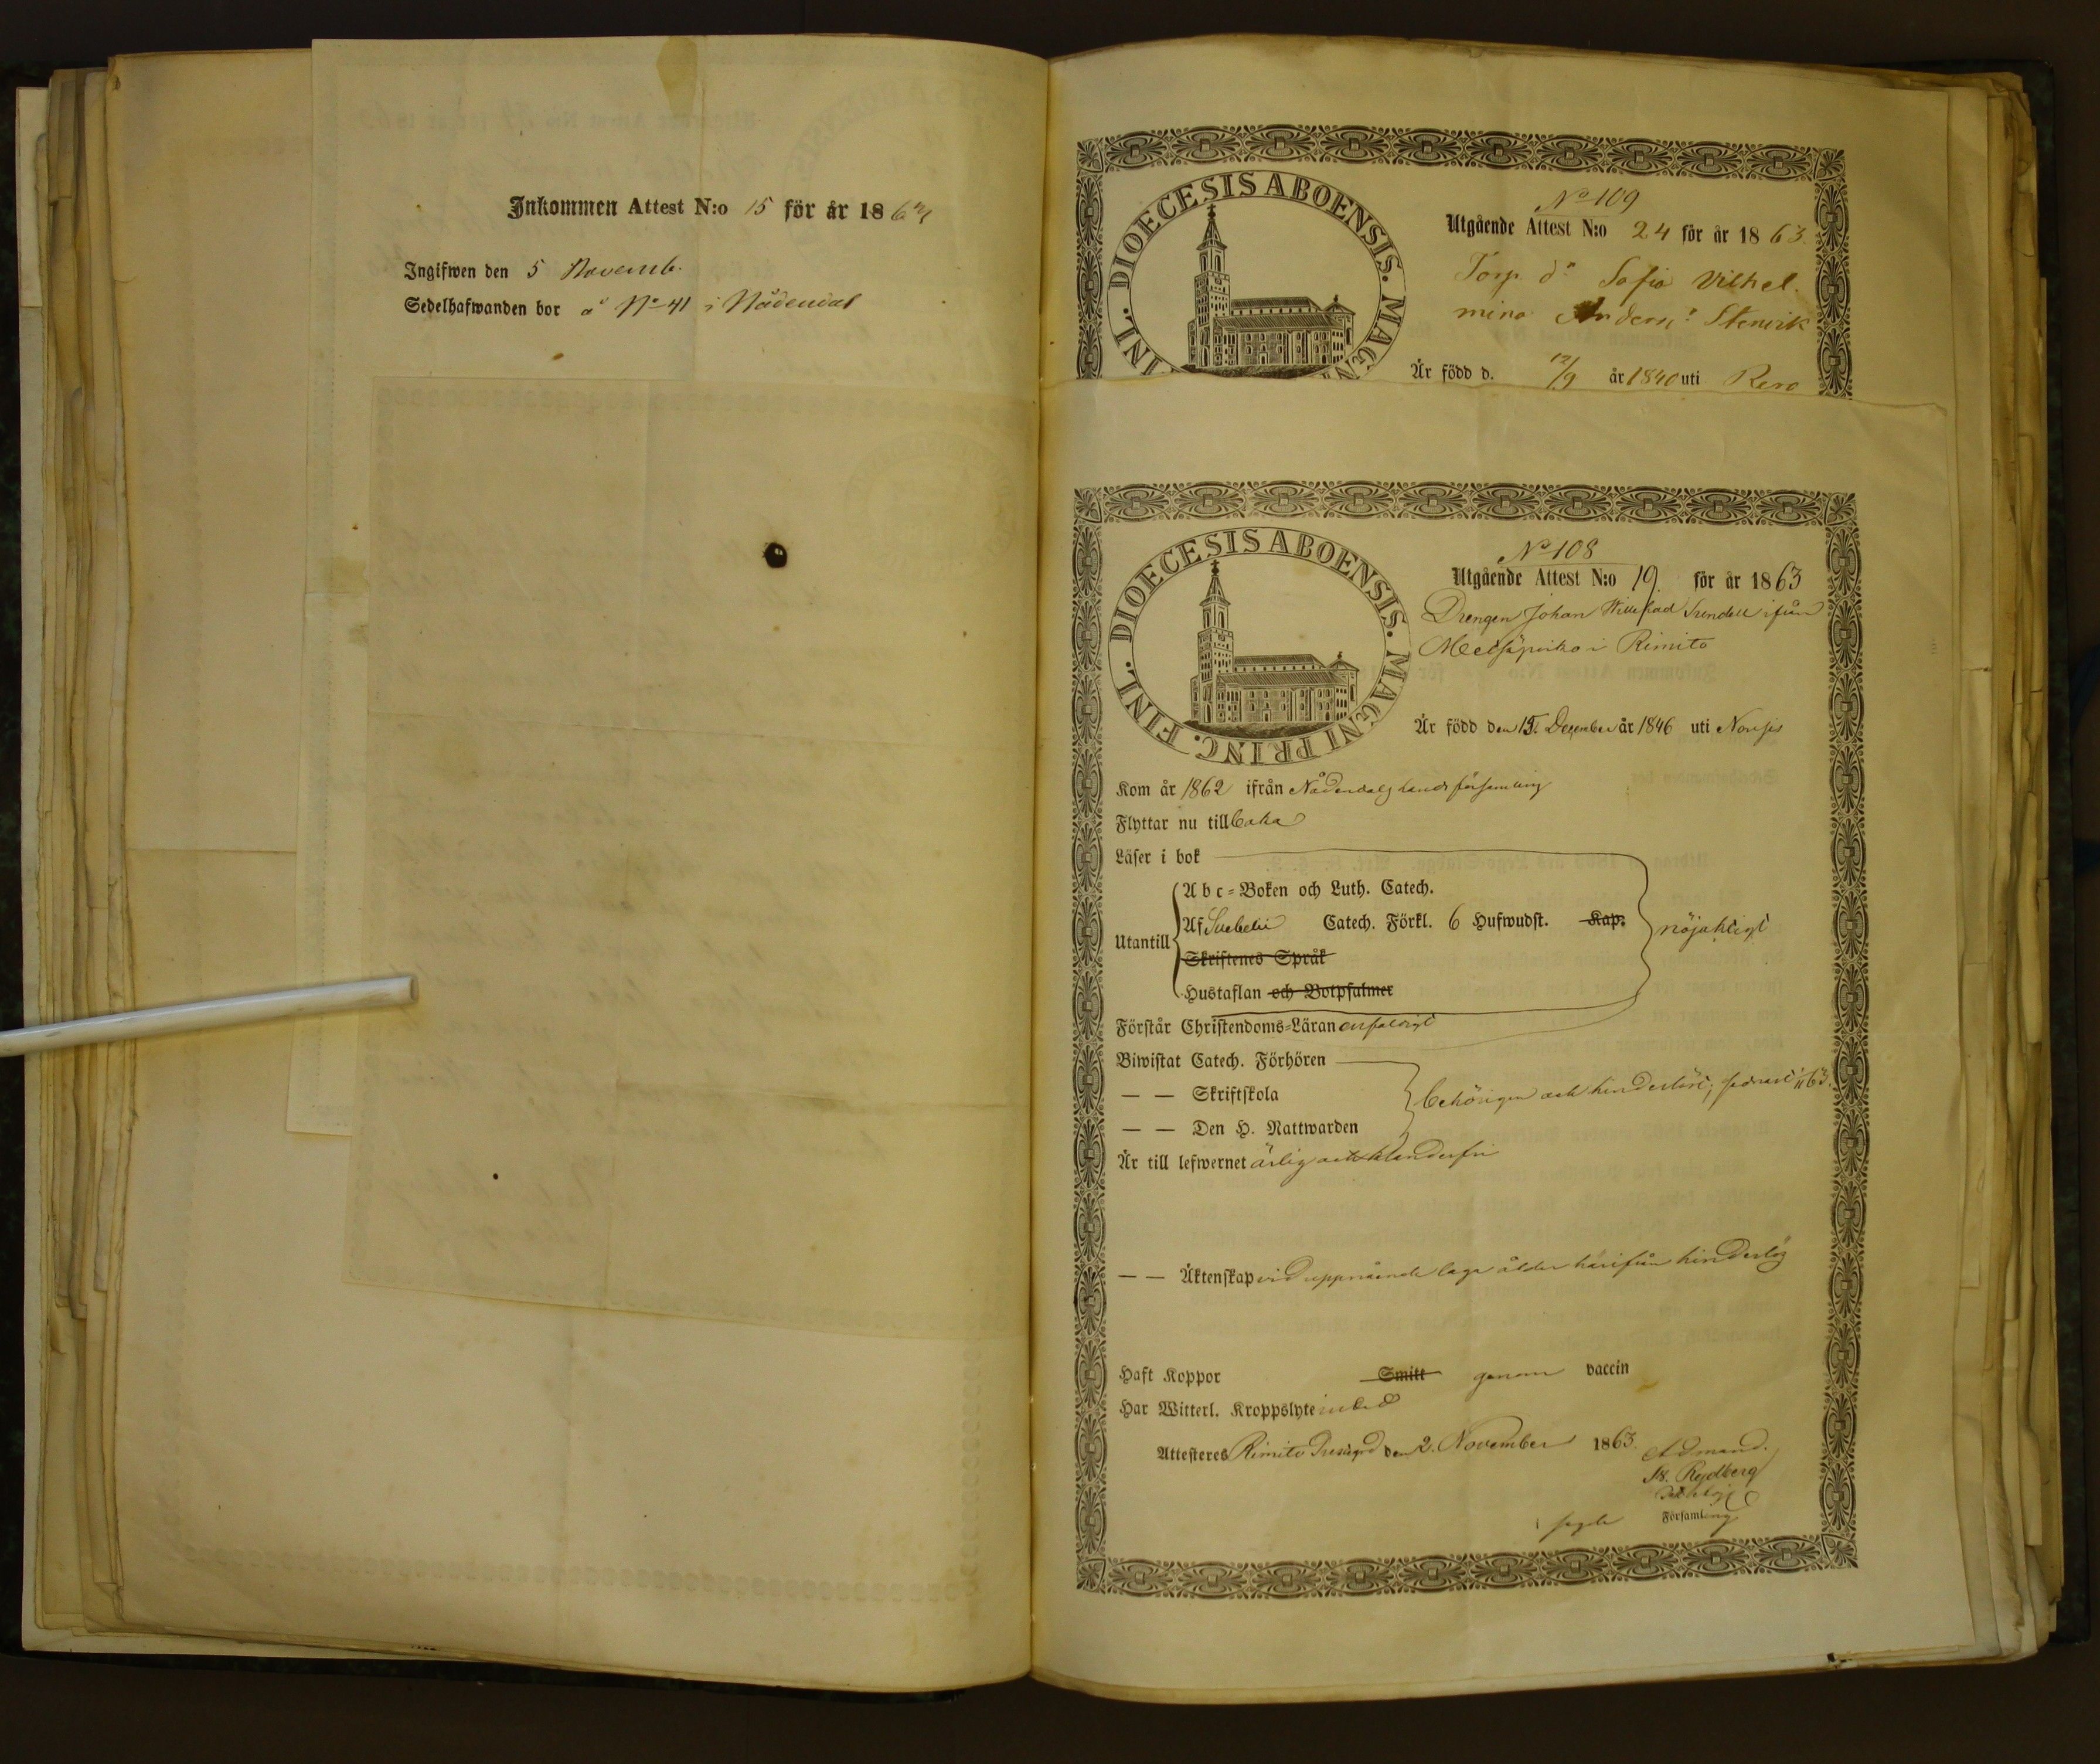 Inkommen Attest N:o 15 för år 186
Ingifwen den 5 Novemb.
Sedelhafwanden bor å No 41 i Nådendal
DIOECESIS ABOENSIS. MAGN
INL.
No 109
Utgående Attest N:o 24 för år 1863
Torp. dr Sofia Vilhel.
mina Andersdr Stenvik
Är född d. 12/9 år 1840 uti Reso
DIOECESIS ABOENSIS. MAGNI PRINC. FINL.
No 108
Utgående Attest N:o 19 för år 1863
Drengen Johan Willehad ifrån
i Rimito
Är född den 15. December år 1846 uti Nousis
Kom år 1862 ifrån Nådendals lands församling
Flyttar nu tillbaka
Läser i bok
Utantill
Abc-Boken och Luth. Catech.
Af Svebelii Catech. Förkl. 6 Hufwudst. Kap.
nöjaktigt
Skriftenes Språk
Hustaflan och Botpsalmer
Förstår Christendoms-Läran enfaldigt
Biwistat Catech. Förhören
— — Skriftskola
behörigen och ; sednast 1/11 63.
— — Den H. Nattwarden
Är till lefwernet ärlig och klanderfri
— — Äktenskap vid uppnående laga ålder härifrån hinderlös
Haft Koppor Smitt genom vaccin
Har Witterl. Kroppslyte
Attesteras Rimito Prestgård den 2. November 1863.
Rydberg
Församling